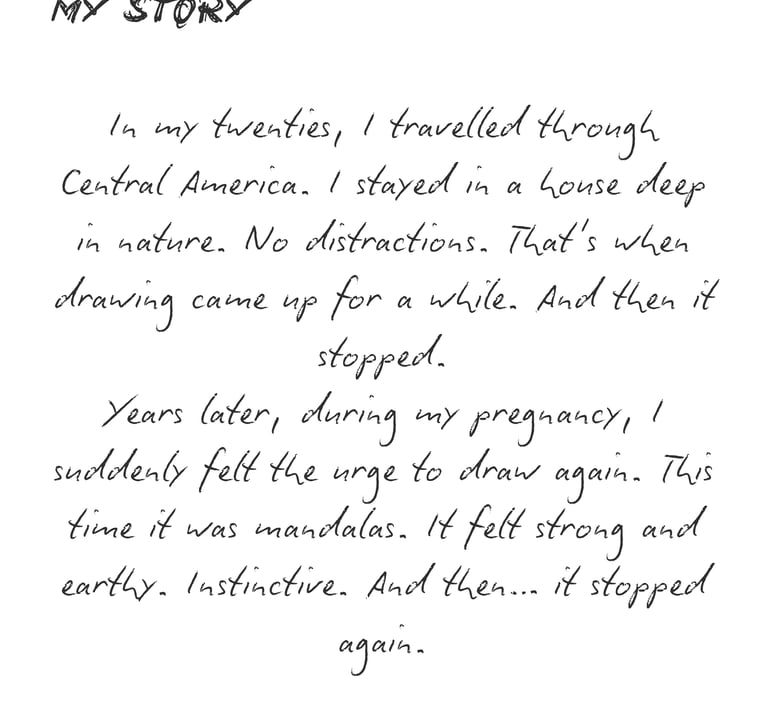 MY STORY
In my twenties, I travelled through
Central America. I stayed in a house deep
in nature. No distractions. That's when
drawing came up for a while. And then it
stopped.
Years later, during my pregnancy, I
suddenly felt the urge to draw again. This
time it was mandalas. It felt strong and
earthy. Instinctive. And then... it stopped
again.